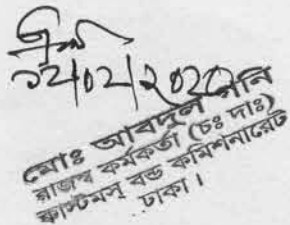 ১২/০২/২০২০
মোঃ আবদুল গনি
রাজস্ব কর্মকর্তা (চঃ দাঃ)
কাস্টমস্ বন্ড কমিশনারেট
ঢাকা।